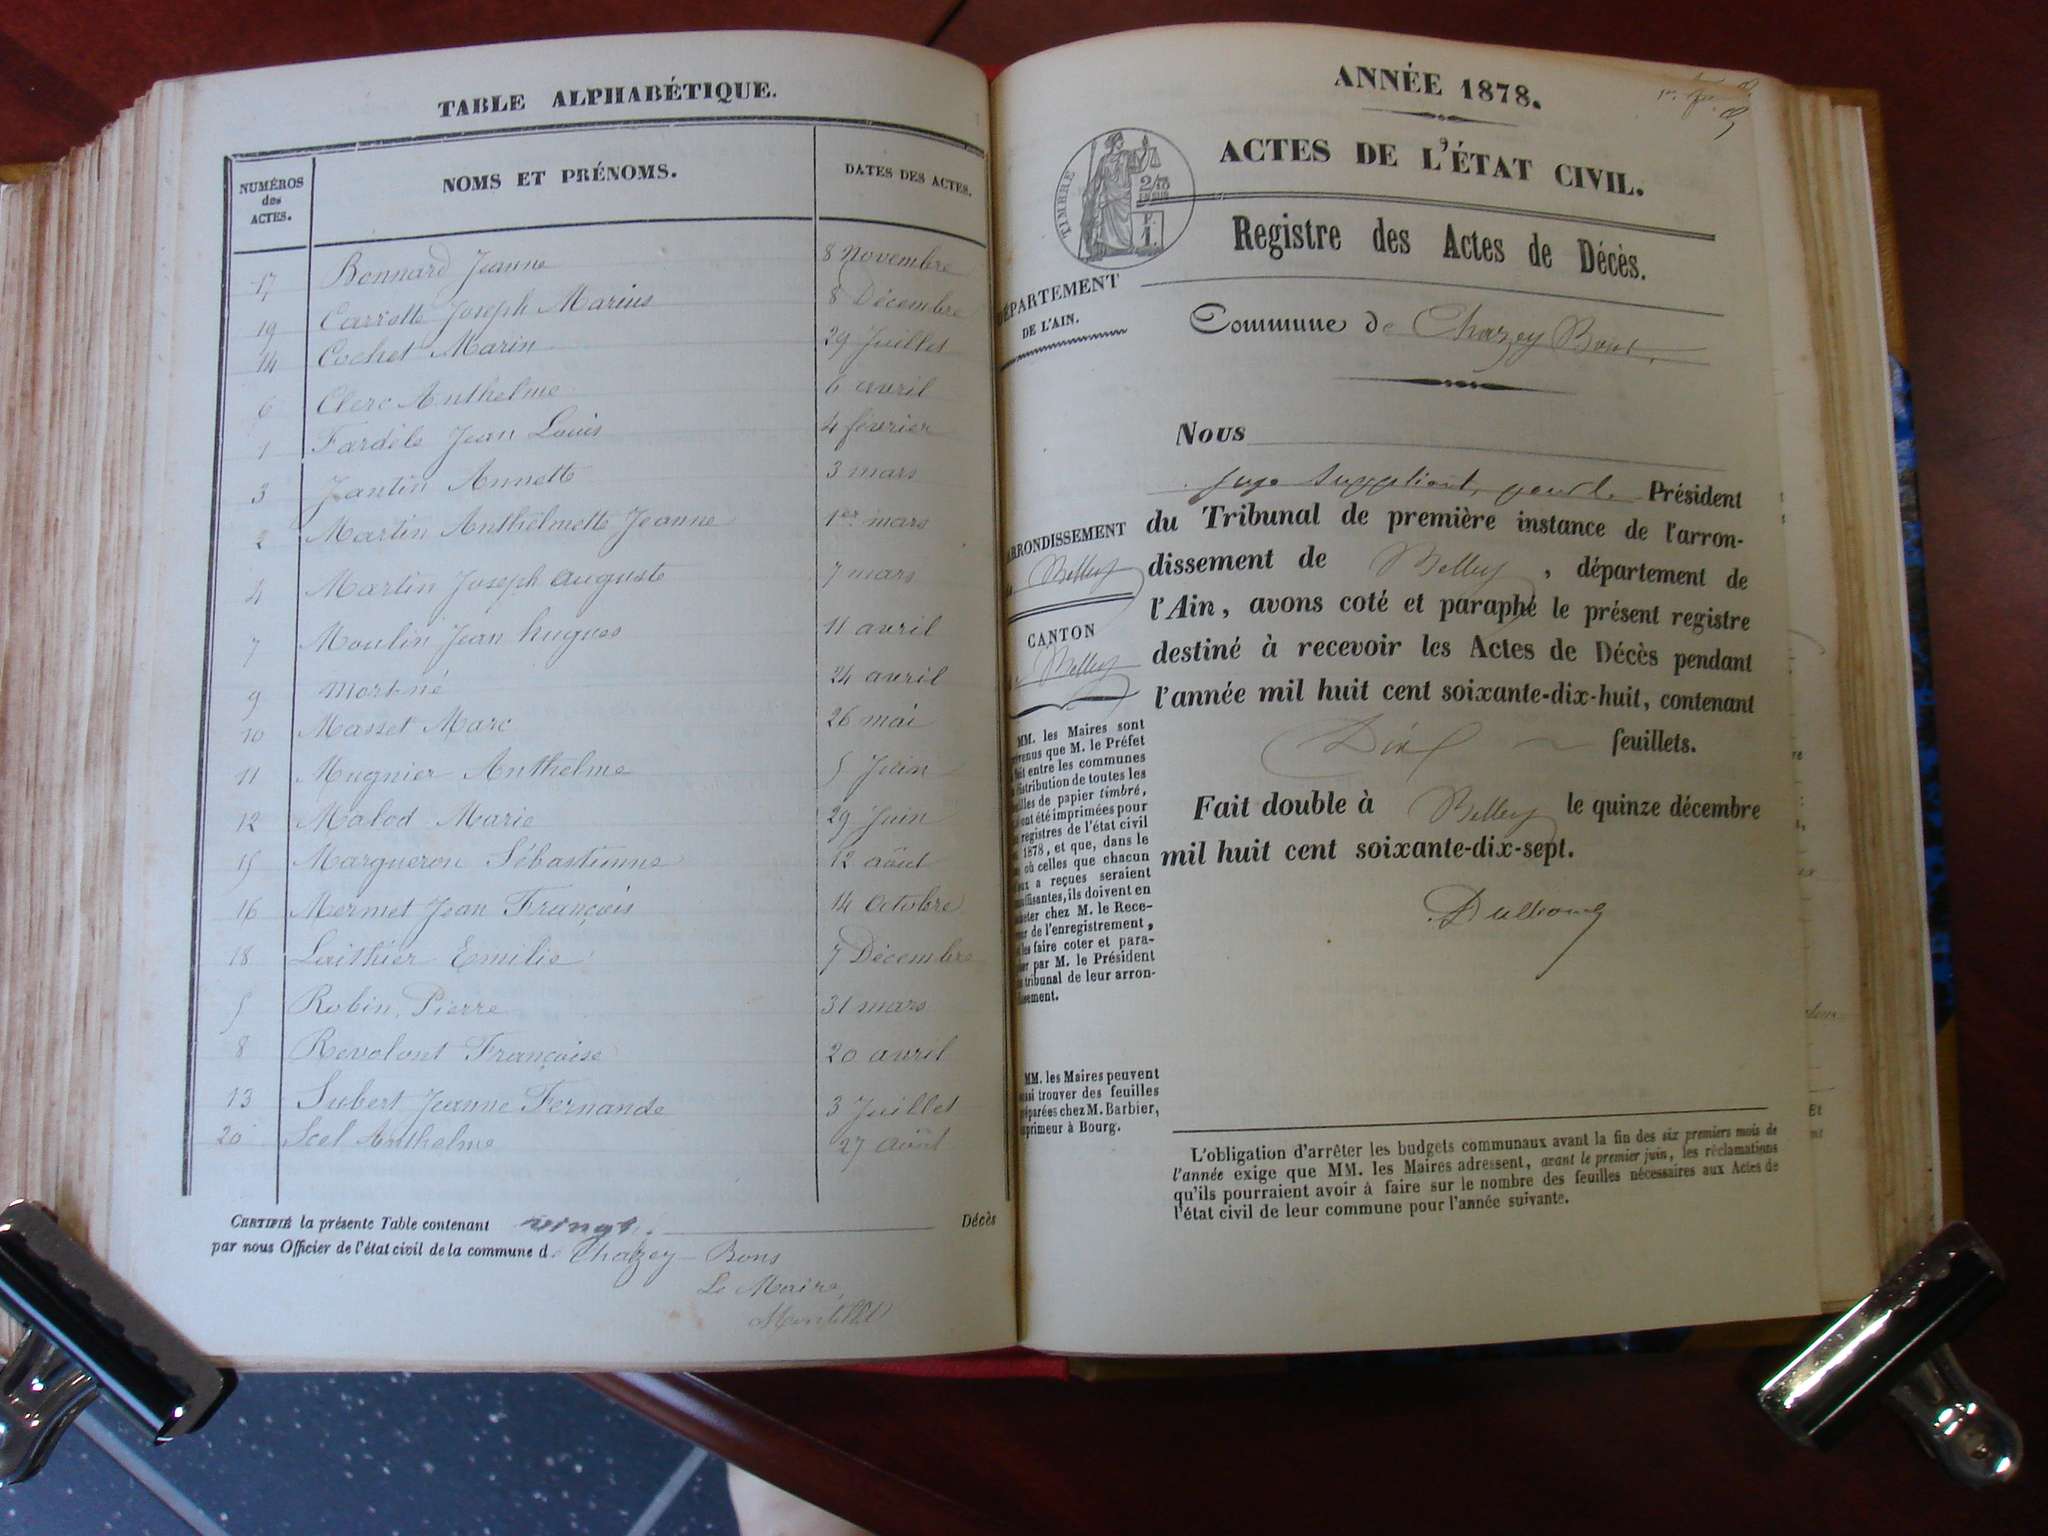 TABLE ALPHABÉTIQUE.
NUMÉROS des ACTES. NOMS ET PRÉNOMS. DATES DES ACTES.
17 Bonnard Jeanne 8 Novembre
19 Joseph Marius 8 Décembre
14 Cochet Marin 29 Juillet
6 Clerc Anthelme 6 avril
1 Fardèle Jean Louis 4 février
3 Jantin Annette 3 mars
2 Martin Anthelmette Jeanne 1er mars
4 Martin Joseph Auguste 7 mars
7 Moulin Jean hugues 11 avril
9 Mort-né 24 avril
10 Masset Marc 26 mai
11 Mugnier Anthelme 5 Juin
12 Malod Marie 29 Juin
15 Margueron Sébastienne 12 août
16 Mermet Jean François 14 Octobre
18 Laithier Emilie 7 Décembre
5 Robin Pierre 31 mars
8 Revolont Françoise 20 avril
13 Subert Jeanne Fernande 3 Juillet
20 Scel Anthelme 27 Août
CERTIFIÉ la présente Table contenant vingt Décès
par nous Officier de l'état civil de la commune de Chazey-Bons
Le Maire,
ANNÉE 1878.
ACTES DE L'ÉTAT CIVIL.
TIMBRE
2/10 EN SUS
Registre des Actes de Décès.
DÉPARTEMENT
DE L'AIN.
Commune de Chazey Bons.
Nous
Juge Suppléant, pour le Président
du Tribunal de première instance de l'arron-
dissement de Belley, département de
l'Ain, avons coté et paraphé le présent registre
destiné à recevoir les Actes de Décès pendant
l'année mil huit cent soixante-dix-huit, contenant
Dix feuillets.
Fait double à Belley le quinze décembre
mil huit cent soixante-dix-sept.
ARRONDISSEMENT
Belley
CANTON
Belley
MM. les Maires sont
prévenus que M. le Préfet
fait entre les communes
distribution de toutes les
feuilles de papier timbré,
ont été imprimées pour
registres de l'état civil
1878, et que, dans le
où celles que chacun
eux a reçues seraient
insuffisantes, ils doivent en
acheter chez M. le Rece-
veur de l'enregistrement,
les faire coter et para-
pher par M. le Président
tribunal de leur arron-
dissement.
MM. les Maires peuvent
aussi trouver des feuilles
préparées chez M. Barbier,
imprimeur à Bourg.
L'obligation d'arrêter les budgets communaux avant la fin des six premiers mois de
l'année exige que MM. les Maires adressent, avant le premier juin, les réclamations
qu'ils pourraient avoir à faire sur le nombre des feuilles nécessaires aux Actes de
l'état civil de leur commune pour l'année suivante.